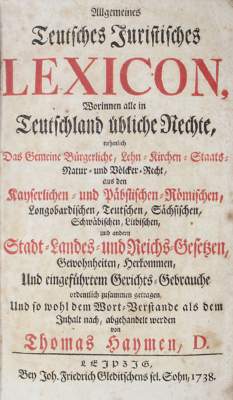 Allgemeines
Teutsches Juristisches
LEXICON,
Worinnen alle in
Teutschland übliche Rechte,
nehmlich
Das Gemeine Bürgerliche, Lehn-Kirchen-Staats-
Natur- und Völcker-Recht,
aus den
Kayserlichen- und Päbstischen-Römischen,
Longobardischen, Teutschen, Sächsischen,
Schwäbischen, Lübischen,
und andern
Stadt-Landes- und Reichs-Gesetzen,
Gewohnheiten, Herkommen,
Und eingeführtem Gerichts-Gebrauche
ordentlich zusammen getragen,
Und so wohl dem Wort-Verstande als dem
Inhalt nach, abgehandelt werden
von
Thomas Haymen, D.
LEIPZIG,
Bey Joh. Friedrich Gleditschens sel. Sohn, 1738.